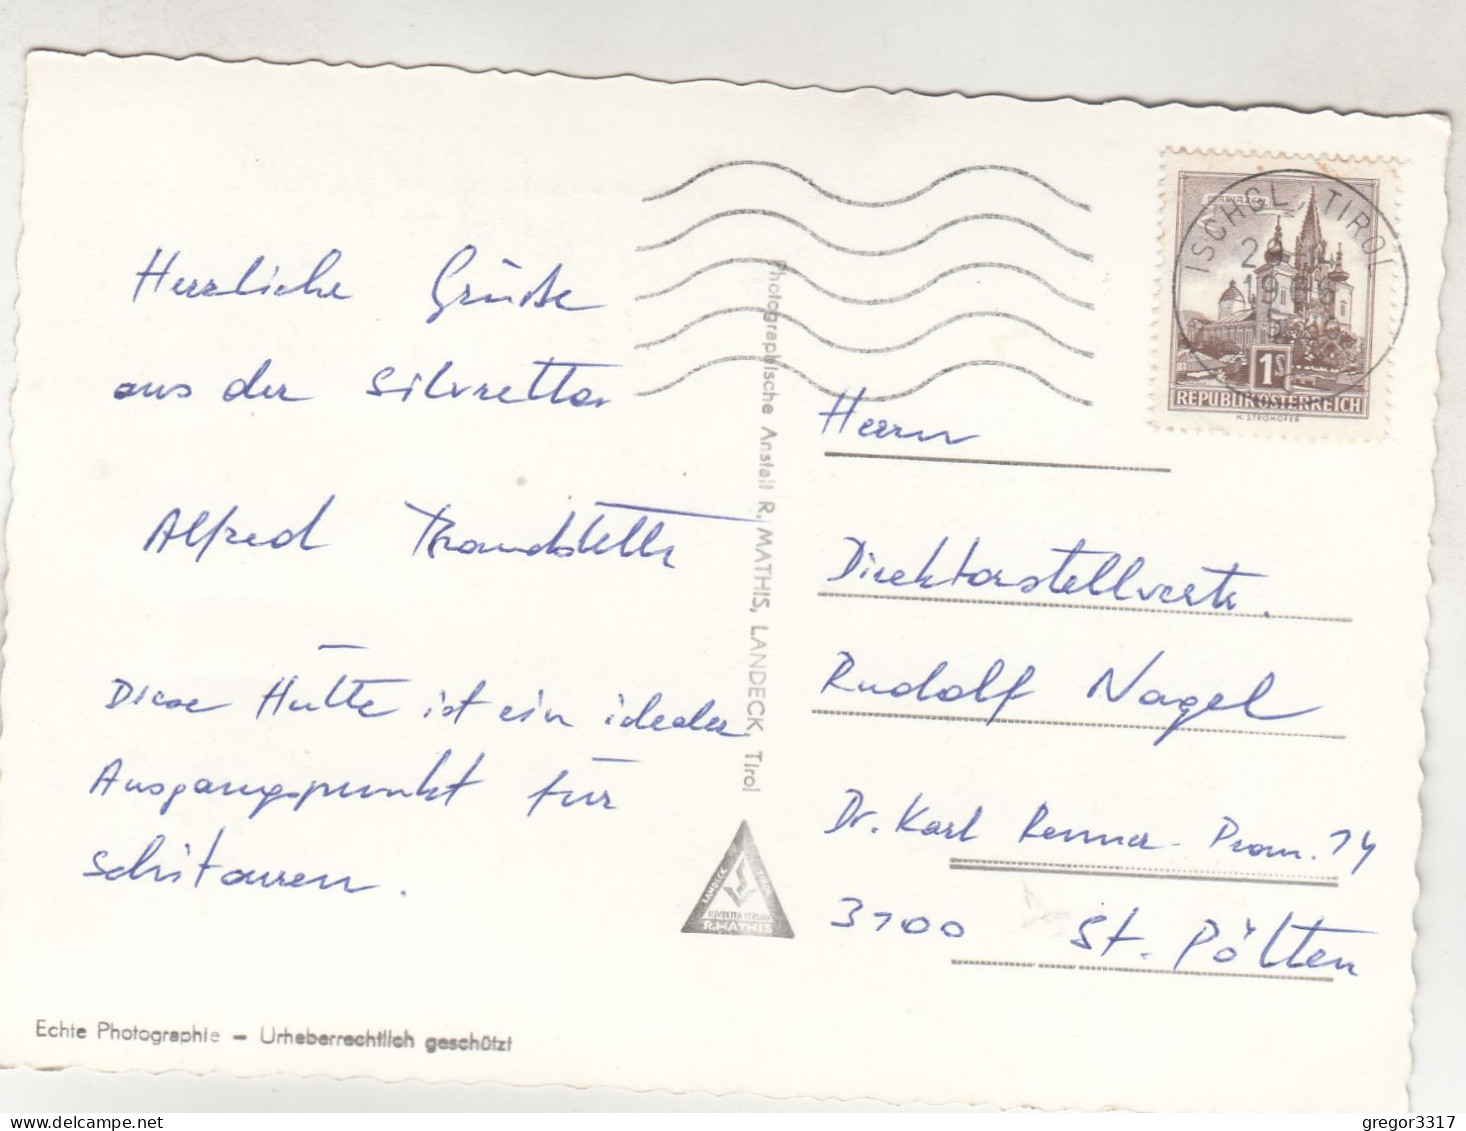 Herrliche Grüße
aus der Silvretta
Alfred
Diese Hütte ist ein idealer
Ausgangspunkt für
Schitouren.
Echte Photographie – Urheberrechtlich geschützt
Photographische Anstalt R. MATHIS, LANDECK, Tirol
LANDECK TIROL
SILVRETTA VERLAG
R. MATHIS
ISCHGL, TIROL
1966
MARIAZELL
1S
REPUBLIK ÖSTERREICH
H. STROHOFER
Herrn
Direktorstellvertr.
Rudolf Nagel
Dr. Karl Renner-Prom. 14
3100 St. Pölten
gregor3317
delcampe.net